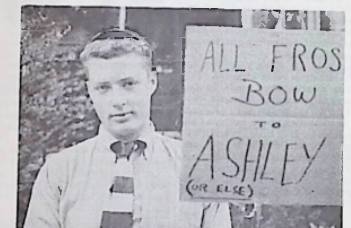 ALL FROS
BOW
TO
ASHLEY
(OR ELSE)